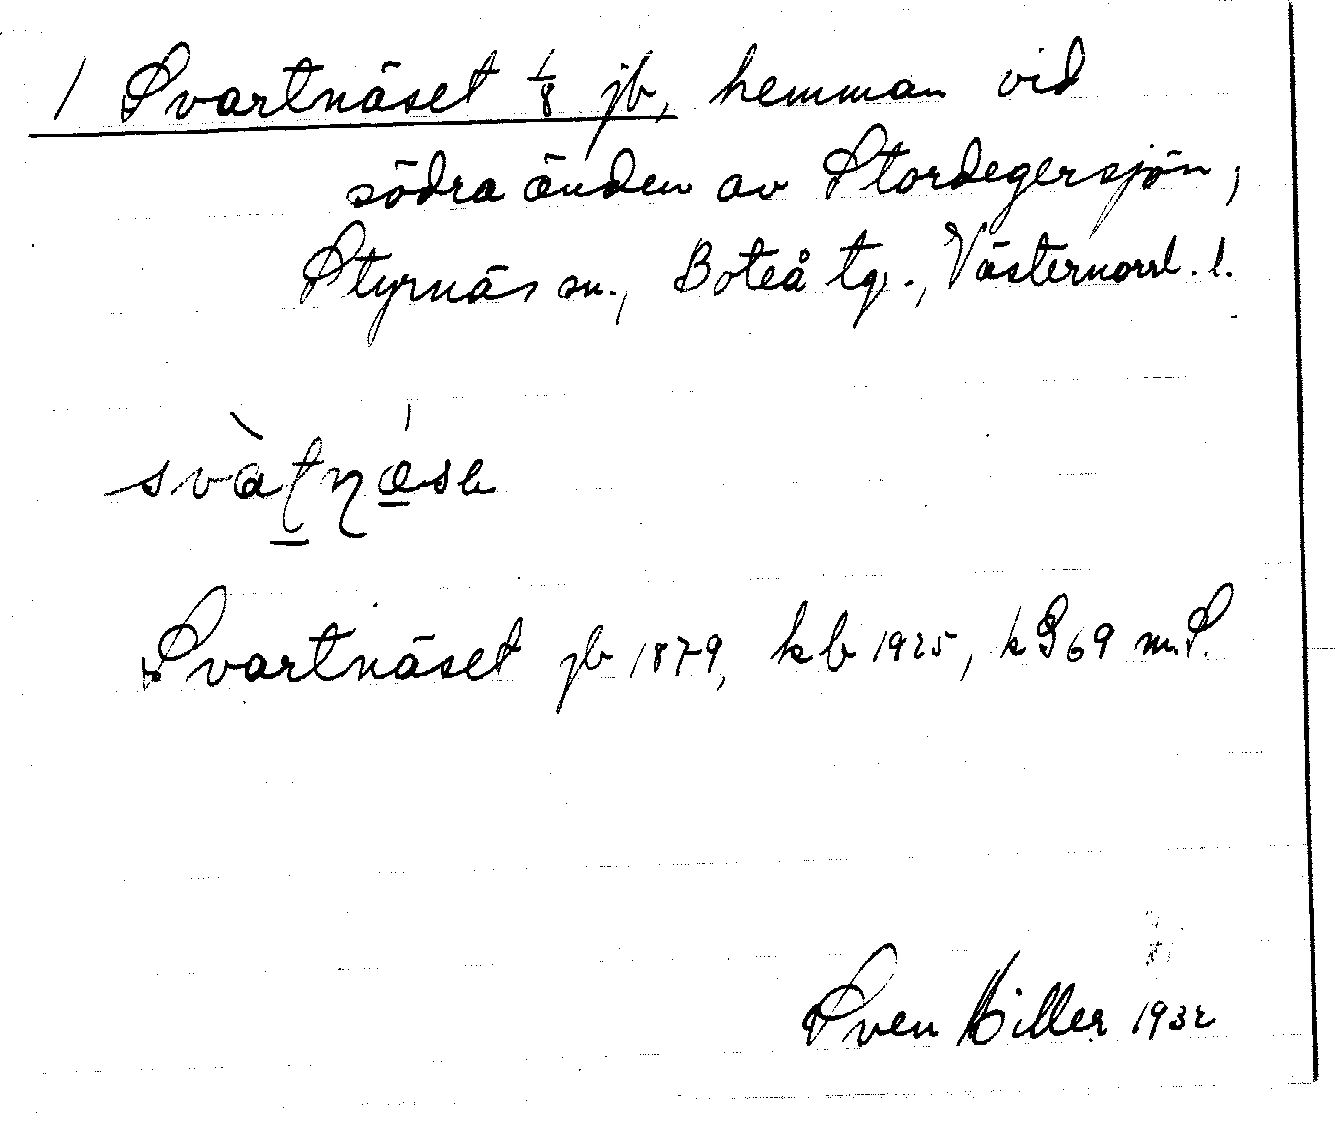 1 Svartnäset 1/8 jb, hemman vid
södra änden av Stordegersjön,
Styrnäs sn., Boteå tg., Västernorrl. l.
svàʈɳǽsɐ
Svartnäset jb 1879, kb 1925, kG 69 m.S.
Sven Hiller 1932